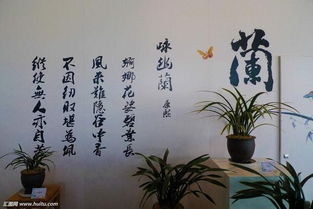 蘭
咏幽蘭 康熙
婀娜花姿碧葉長
風來難隱谷中香
不因紉取堪為佩
縱使無人亦自芳
汇图网 www.huitu.com